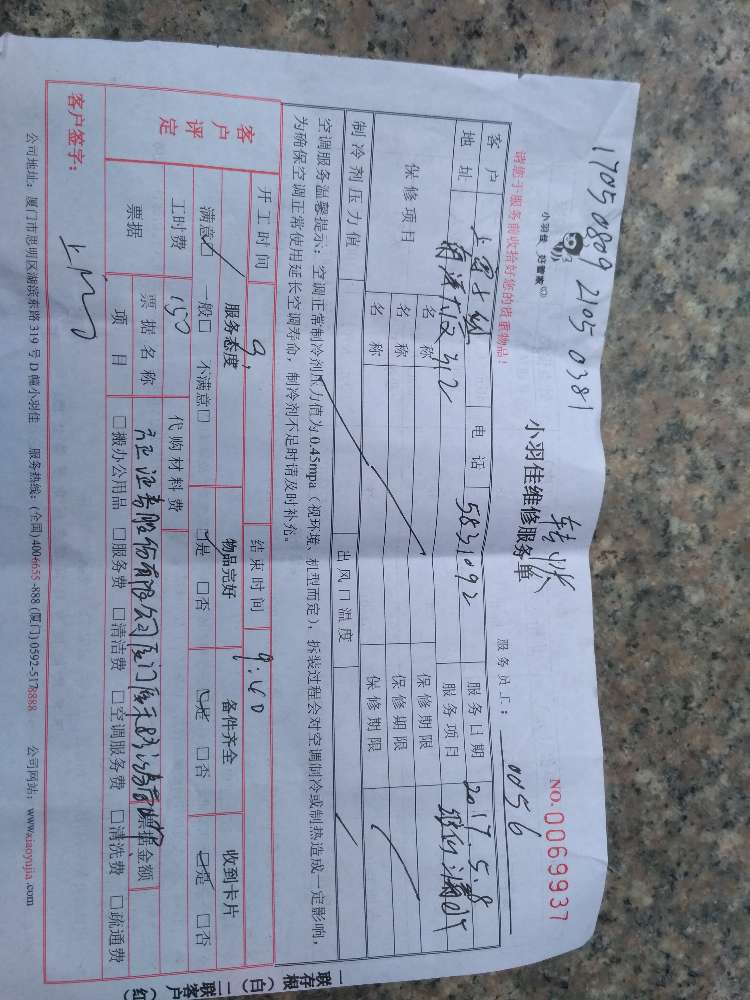 17050809 2105 0381
小羽佳 好管家
请您于服务前收拾好您的贵重物品!
小羽佳维修服务单
转账
NO. 0069937
服务员工: 0056
客户
电话 5831092
服务日期 2017.5.8
地址
服务项目
保修项目 名称 保修期限
名称 保修期限
名称 保修期限
制冷剂压力值 出风口温度
空调服务温馨提示: 空调正常制冷剂压力值为0.45mpa (视环境、机型而定), 拆装过程会对空调制冷或制热造成一定影响,
为确保空调正常使用延长空调寿命, 制冷剂不足时请及时补充。
开工时间 9. 结束时间 9.40
客户评定 服务态度 物品完好 备件齐全 收到卡片
满意☑ 一般□ 不满意□ ☑是 □否 ☑是 □否 ☑是 □否
工时费 150 代购材料费
票据 票据名称 票据金额
项目 □搬办公用品 □服务费 □清洁费 □空调服务费 □清洗费 □疏通费
客户签字:
公司地址: 厦门市思明区湖滨东路319号D幢小羽佳 服务热线: (全国) 400-6655-888 (厦门) 0592-5178888 公司网站: www.xiaoyujia.com
一联存根(白) 二联客户(红)